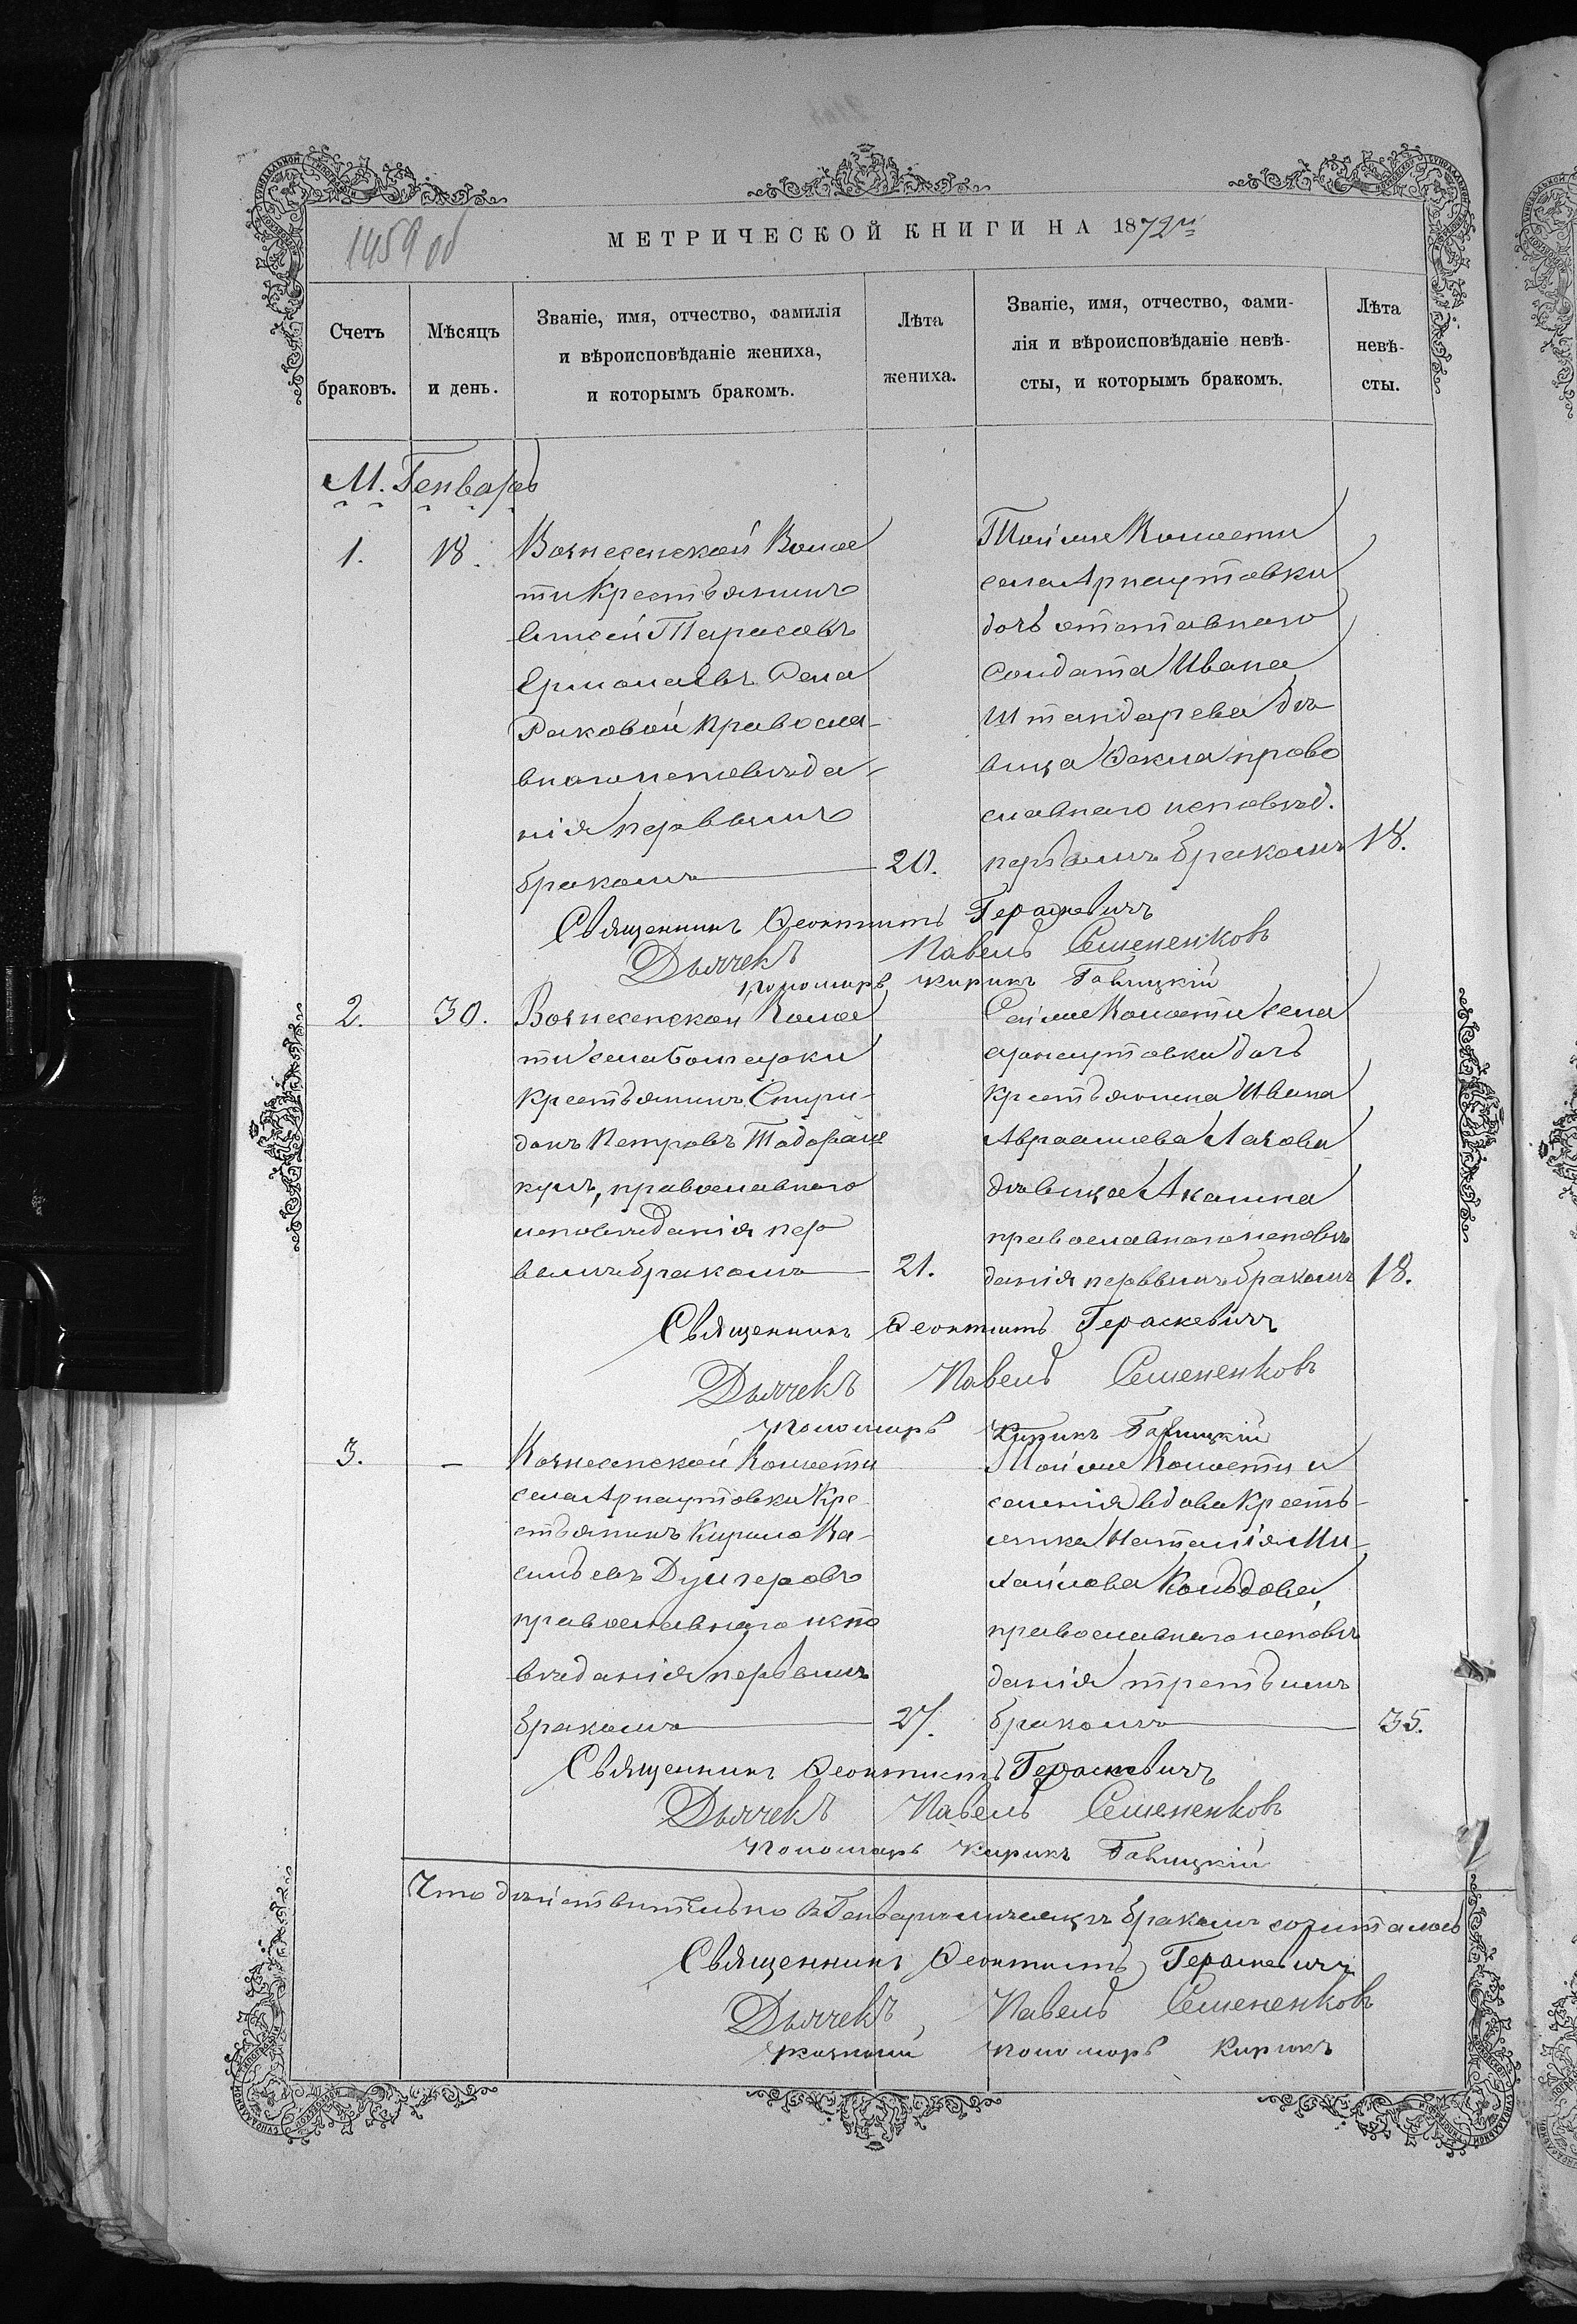 1459 об
МЕТРИЧЕСКОЙ КНИГИ НА 1872й
Счетъ браковъ.
Мѣсяцъ и день.
Званіе, имя, отчество, фамилія
и вѣроисповѣданіе жениха,
и которымъ бракомъ.
Лѣта жениха.
Званіе, имя, отчество, фами-
лія и вѣроисповѣданіе невѣ-
сты, и которымъ бракомъ.
Лѣта невѣ-
сты.
М. Генварь
1.
18.
Вознесенской Волос
ти Крестьянинъ
Тарасовъ
Ермолаевъ села
Раковой православ-
внаго исповѣда-
нія первымъ
бракомъ
20.
Той же Волости
села Арнаутовки
дочь отставнаго
солдата Ивана
Штандарева дѣ
вица Фекла право
славнаго исповѣд.
первымъ бракомъ
18.
Священникъ Феоктистъ Гераскевичъ
Дьячекъ Павелъ Семененковъ
Пономарь Кирикъ
2.
30.
Вознесенской Волос
ти села Болгарки
Крестьянинъ Спири-
донъ Петровъ
православнаго
исповѣданія пер
вымъ бракомъ
21.
Той же Волости села
Арнаутовки дочь
Крестьянина Ивана
Авраамова
дѣвица Акилина
православнаго исповѣ
данія первымъ бракомъ
18.
Священникъ Феоктистъ Гераскевичъ
Дьячекъ Павелъ Семененковъ
Пономарь Кирикъ
3.
—
Вознесенской Волости
села Арнаутовки Кре
стьянинъ Кирило Ва-
сильевъ Дулгеровъ
православнаго испо
вѣданія первымъ
бракомъ
27.
Той же Волости и
селенія вдова Кресть-
янка Наталія Ми-
хайлова
православнаго исповѣ
данія третьимъ
бракомъ
35.
Священникъ Феоктистъ Гераскевичъ
Дьячекъ Павелъ Семененковъ
Пономарь Кирикъ
Что дѣйствительно въ Генварѣ мѣсяцѣ бракомъ сочитались
Священникъ Феоктистъ Гераскевичъ
Дьячекъ Павелъ Семененковъ
пономарь Кирикъ